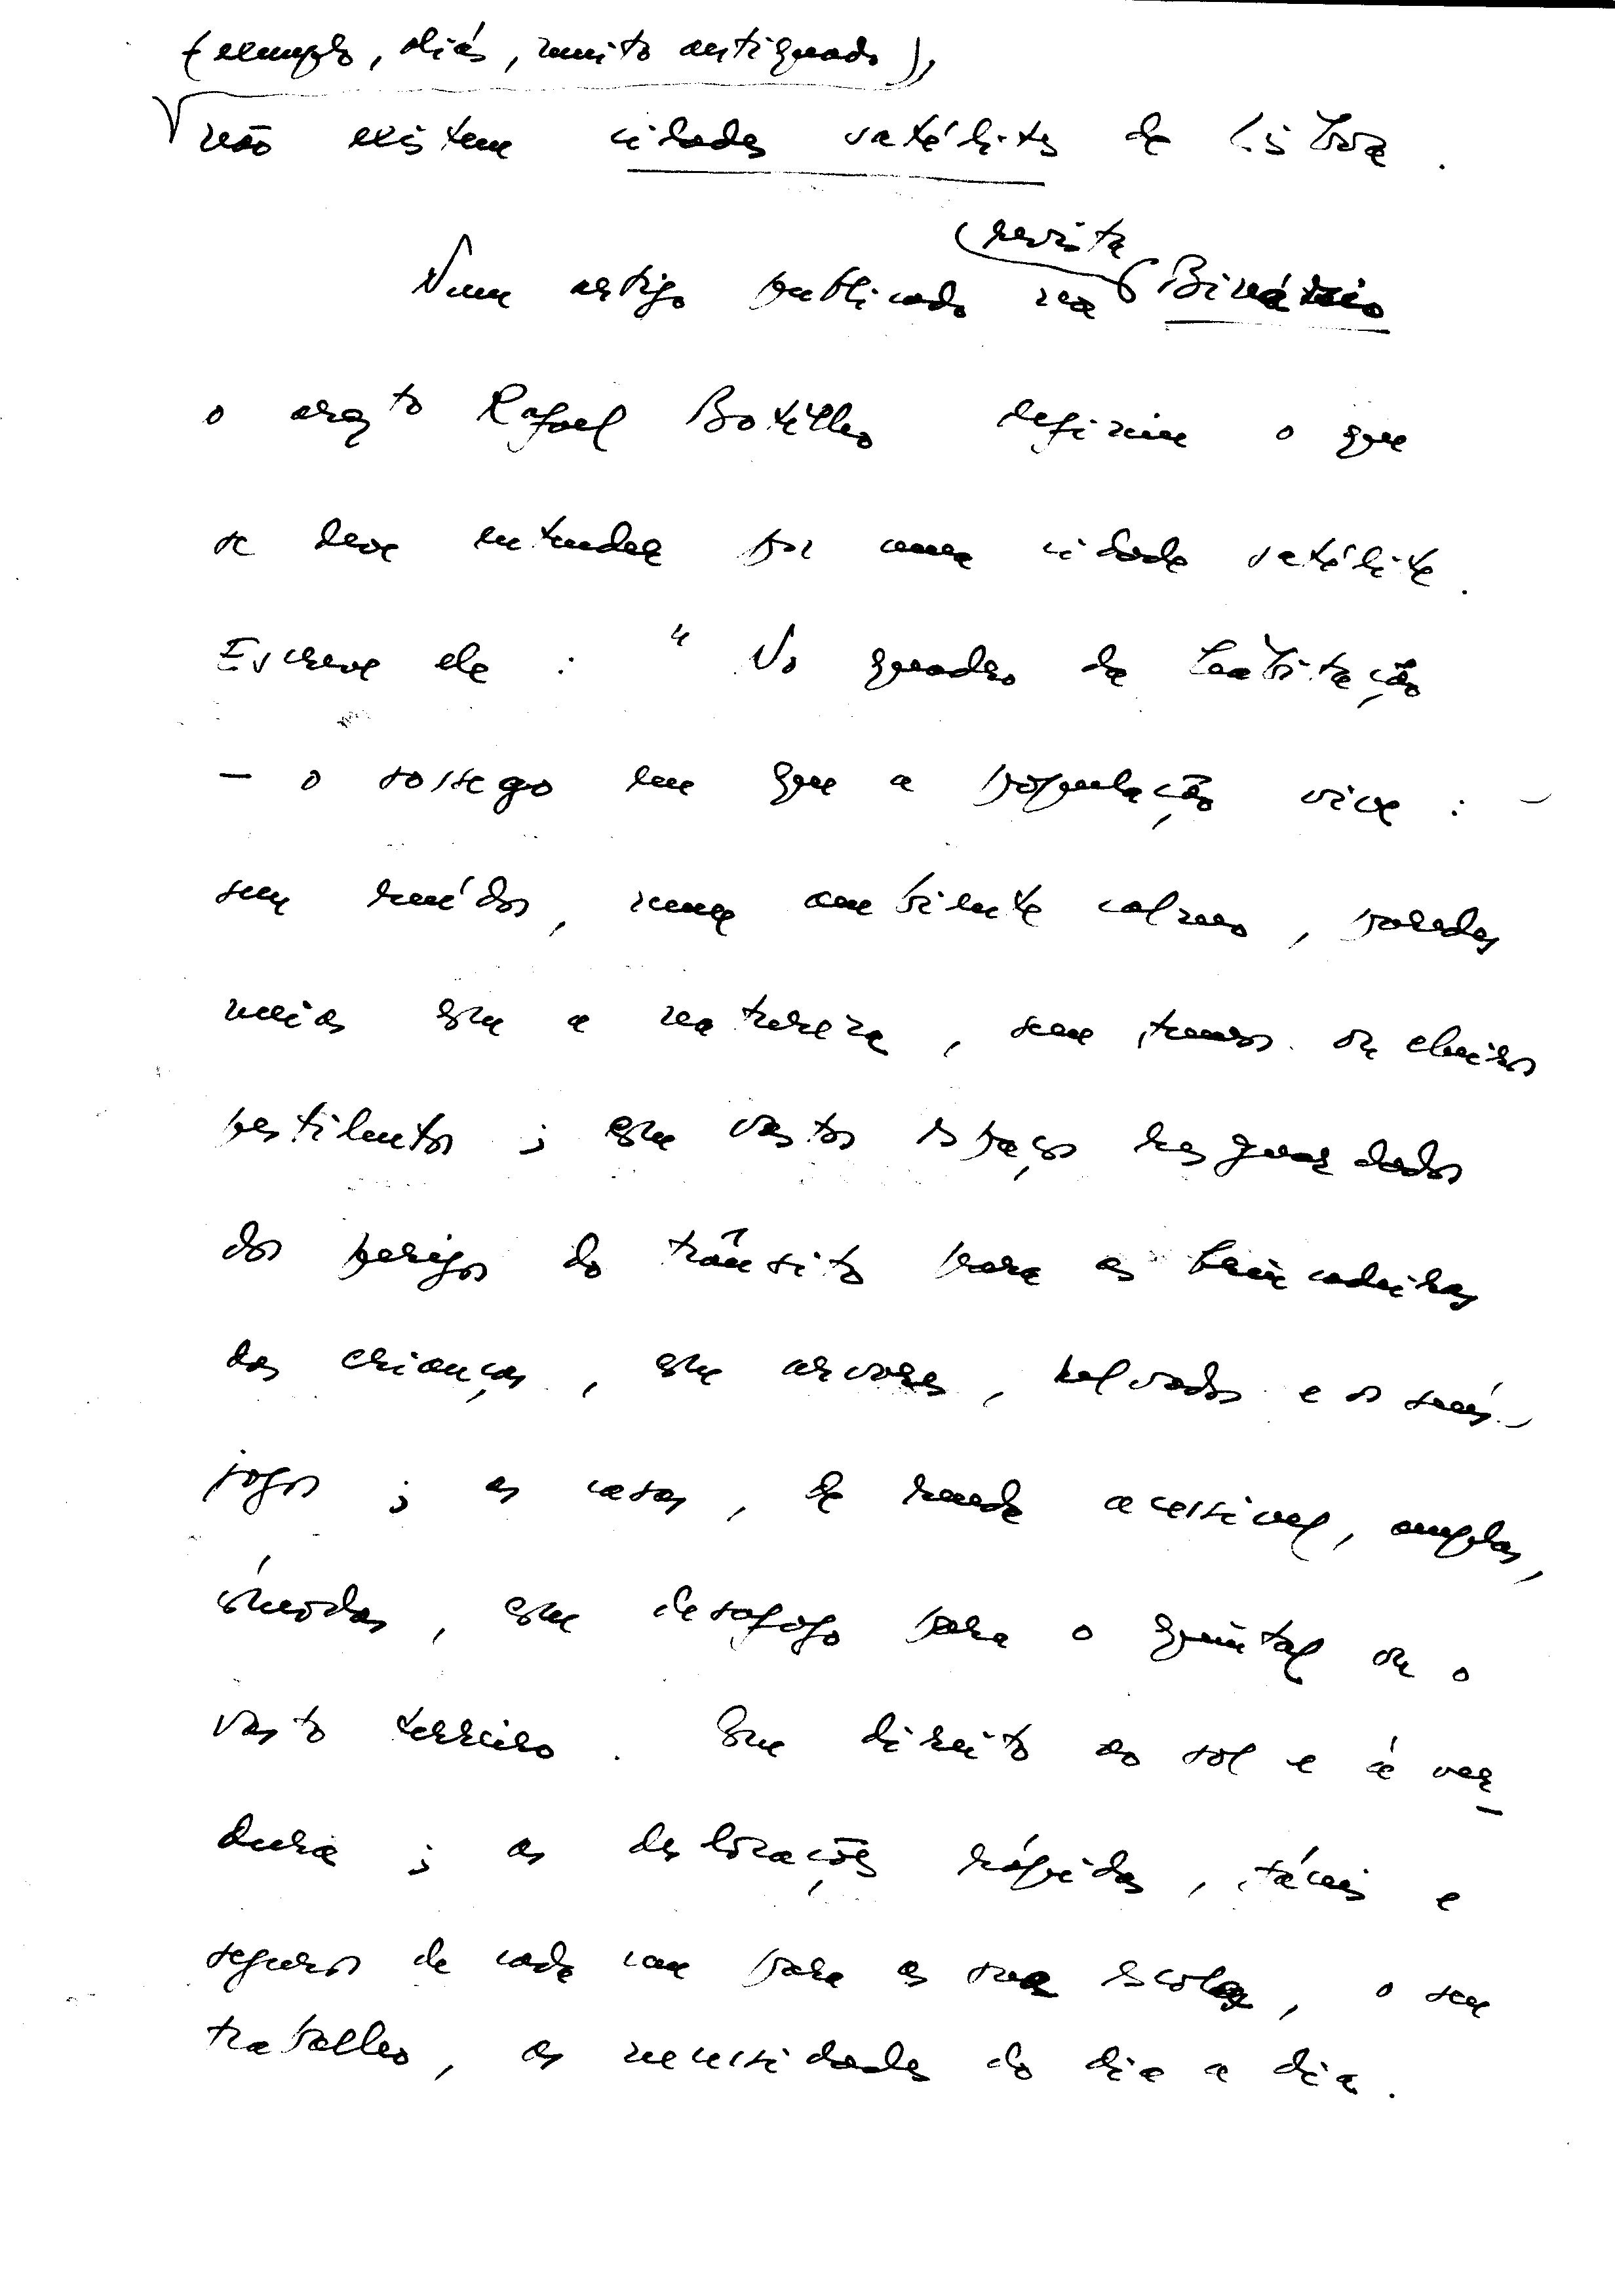 (exemplo, aliás, muito antiquado),
não existem cidades satélites de Lisboa.
revista
Num artigo publicado na Binário
o arqto Rafael Botelho define o que
se deve entender por uma cidade satélite.
Escreve ele: "No quadro da habitação
— o sossego em que a população vive: -
sem ruídos, num ambiente calmo, paredes
meias com a natureza, sem fumos ou cheiros
pestilentos; com vastos espaços resguardados
dos perigos do trânsito para as brincadeiras
das crianças, com arvores, relvados e os seus
jogos; as casas, de renda acessivel, amplas,
cómodas, com desafogo para o quintal ou o
vasto terreiro. Com direito ao sol e á ver_
dura; as deslocações rápidas, fáceis e
seguras de cada um para a sua escola, o seu
trabalho, as necessidades do dia a dia.